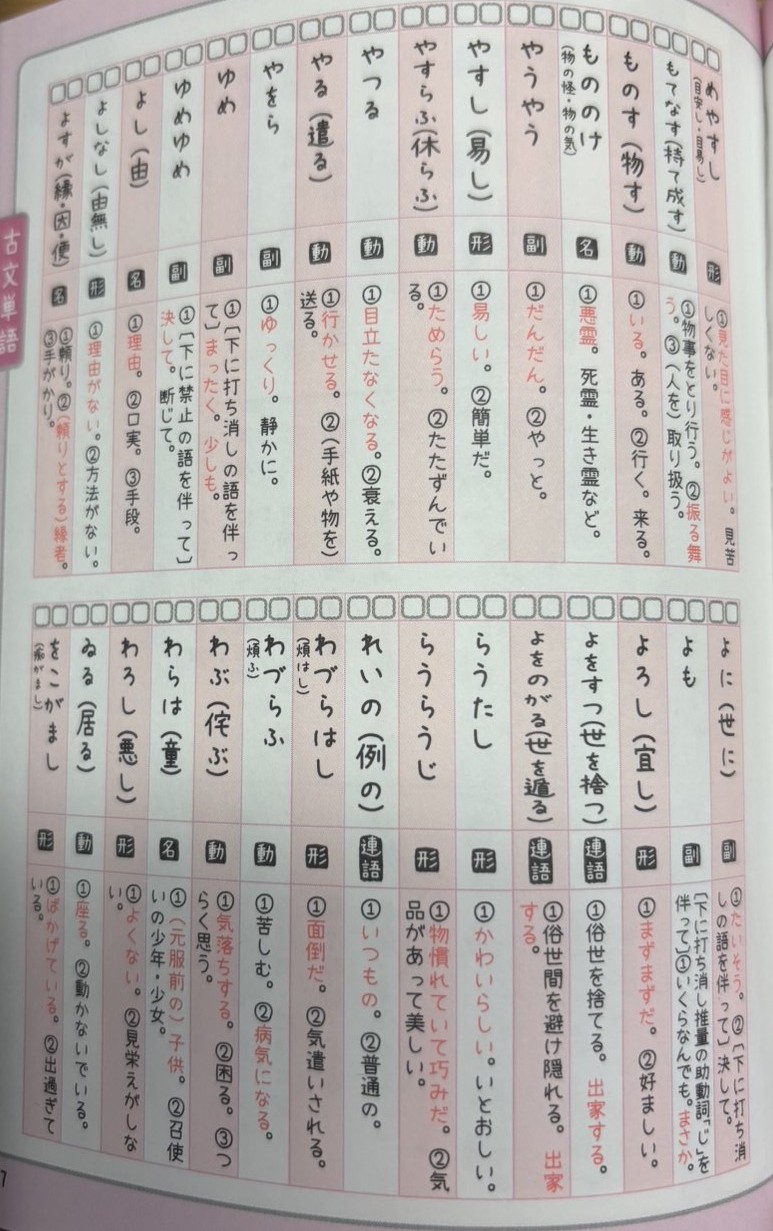 めやすし
(目安し・目易し)
形
①見た目に感じがよい。見苦
しくない。
もてなす(持て成す)
動
①物事をとり行う。②振る舞
う。③(人を)取り扱う。
ものす(物す)
動
①いる。ある。②行く。来る。
もののけ
(物の怪・物の気)
名
①悪霊。死霊・生き霊など。
やうやう
副
①だんだん。②やっと。
やすし(易し)
形
①易しい。②簡単だ。
やすらふ(休らふ)
動
①ためらう。②たたずんでい
る。
やつる
動
①目立たなくなる。②衰える。
やる(遣る)
動
①行かせる。②(手紙や物を)
送る。
やをら
副
①ゆっくり。静かに。
ゆめ
副
①〔下に打ち消しの語を伴っ
て〕まったく。少しも。
ゆめゆめ
副
①〔下に禁止の語を伴って〕
決して。断じて。
よし(由)
名
①理由。②口実。③手段。
よしなし(由無し)
形
①理由がない。②方法がない。
よすが(縁・因・便)
名
①頼り。②(頼りとする)縁者。
③手がかり。
古文単語
よに(世に)
副
①たいそう。②〔下に打ち消
しの語を伴って〕決して。
よも
副
〔下に打ち消し推量の助動詞「じ」を
伴って〕①いくらなんでも。まさか。
よろし(宜し)
形
①まずまずだ。②好ましい。
よをすつ(世を捨つ)
連語
①俗世を捨てる。出家する。
よをのがる(世を遁る)
連語
①俗世間を避け隠れる。出家
する。
らうたし
形
①かわいらしい。いとおしい。
らうらうじ
形
①物慣れていて巧みだ。②気
品があって美しい。
れいの(例の)
連語
①いつもの。②普通の。
わづらはし
(煩はし)
形
①面倒だ。②気遣いされる。
わづらふ
(煩ふ)
動
①苦しむ。②病気になる。
わぶ(侘ぶ)
動
①気落ちする。②困る。③つ
らく思う。
わらは(童)
名
①(元服前の)子供。②召使
いの少年・少女。
わろし(悪し)
形
①よくない。②見栄えがしな
い。
ゐる(居る)
動
①座る。②動かないでいる。
をこがまし
(痴がまし)
形
①ばかげている。②出過ぎて
いる。
7